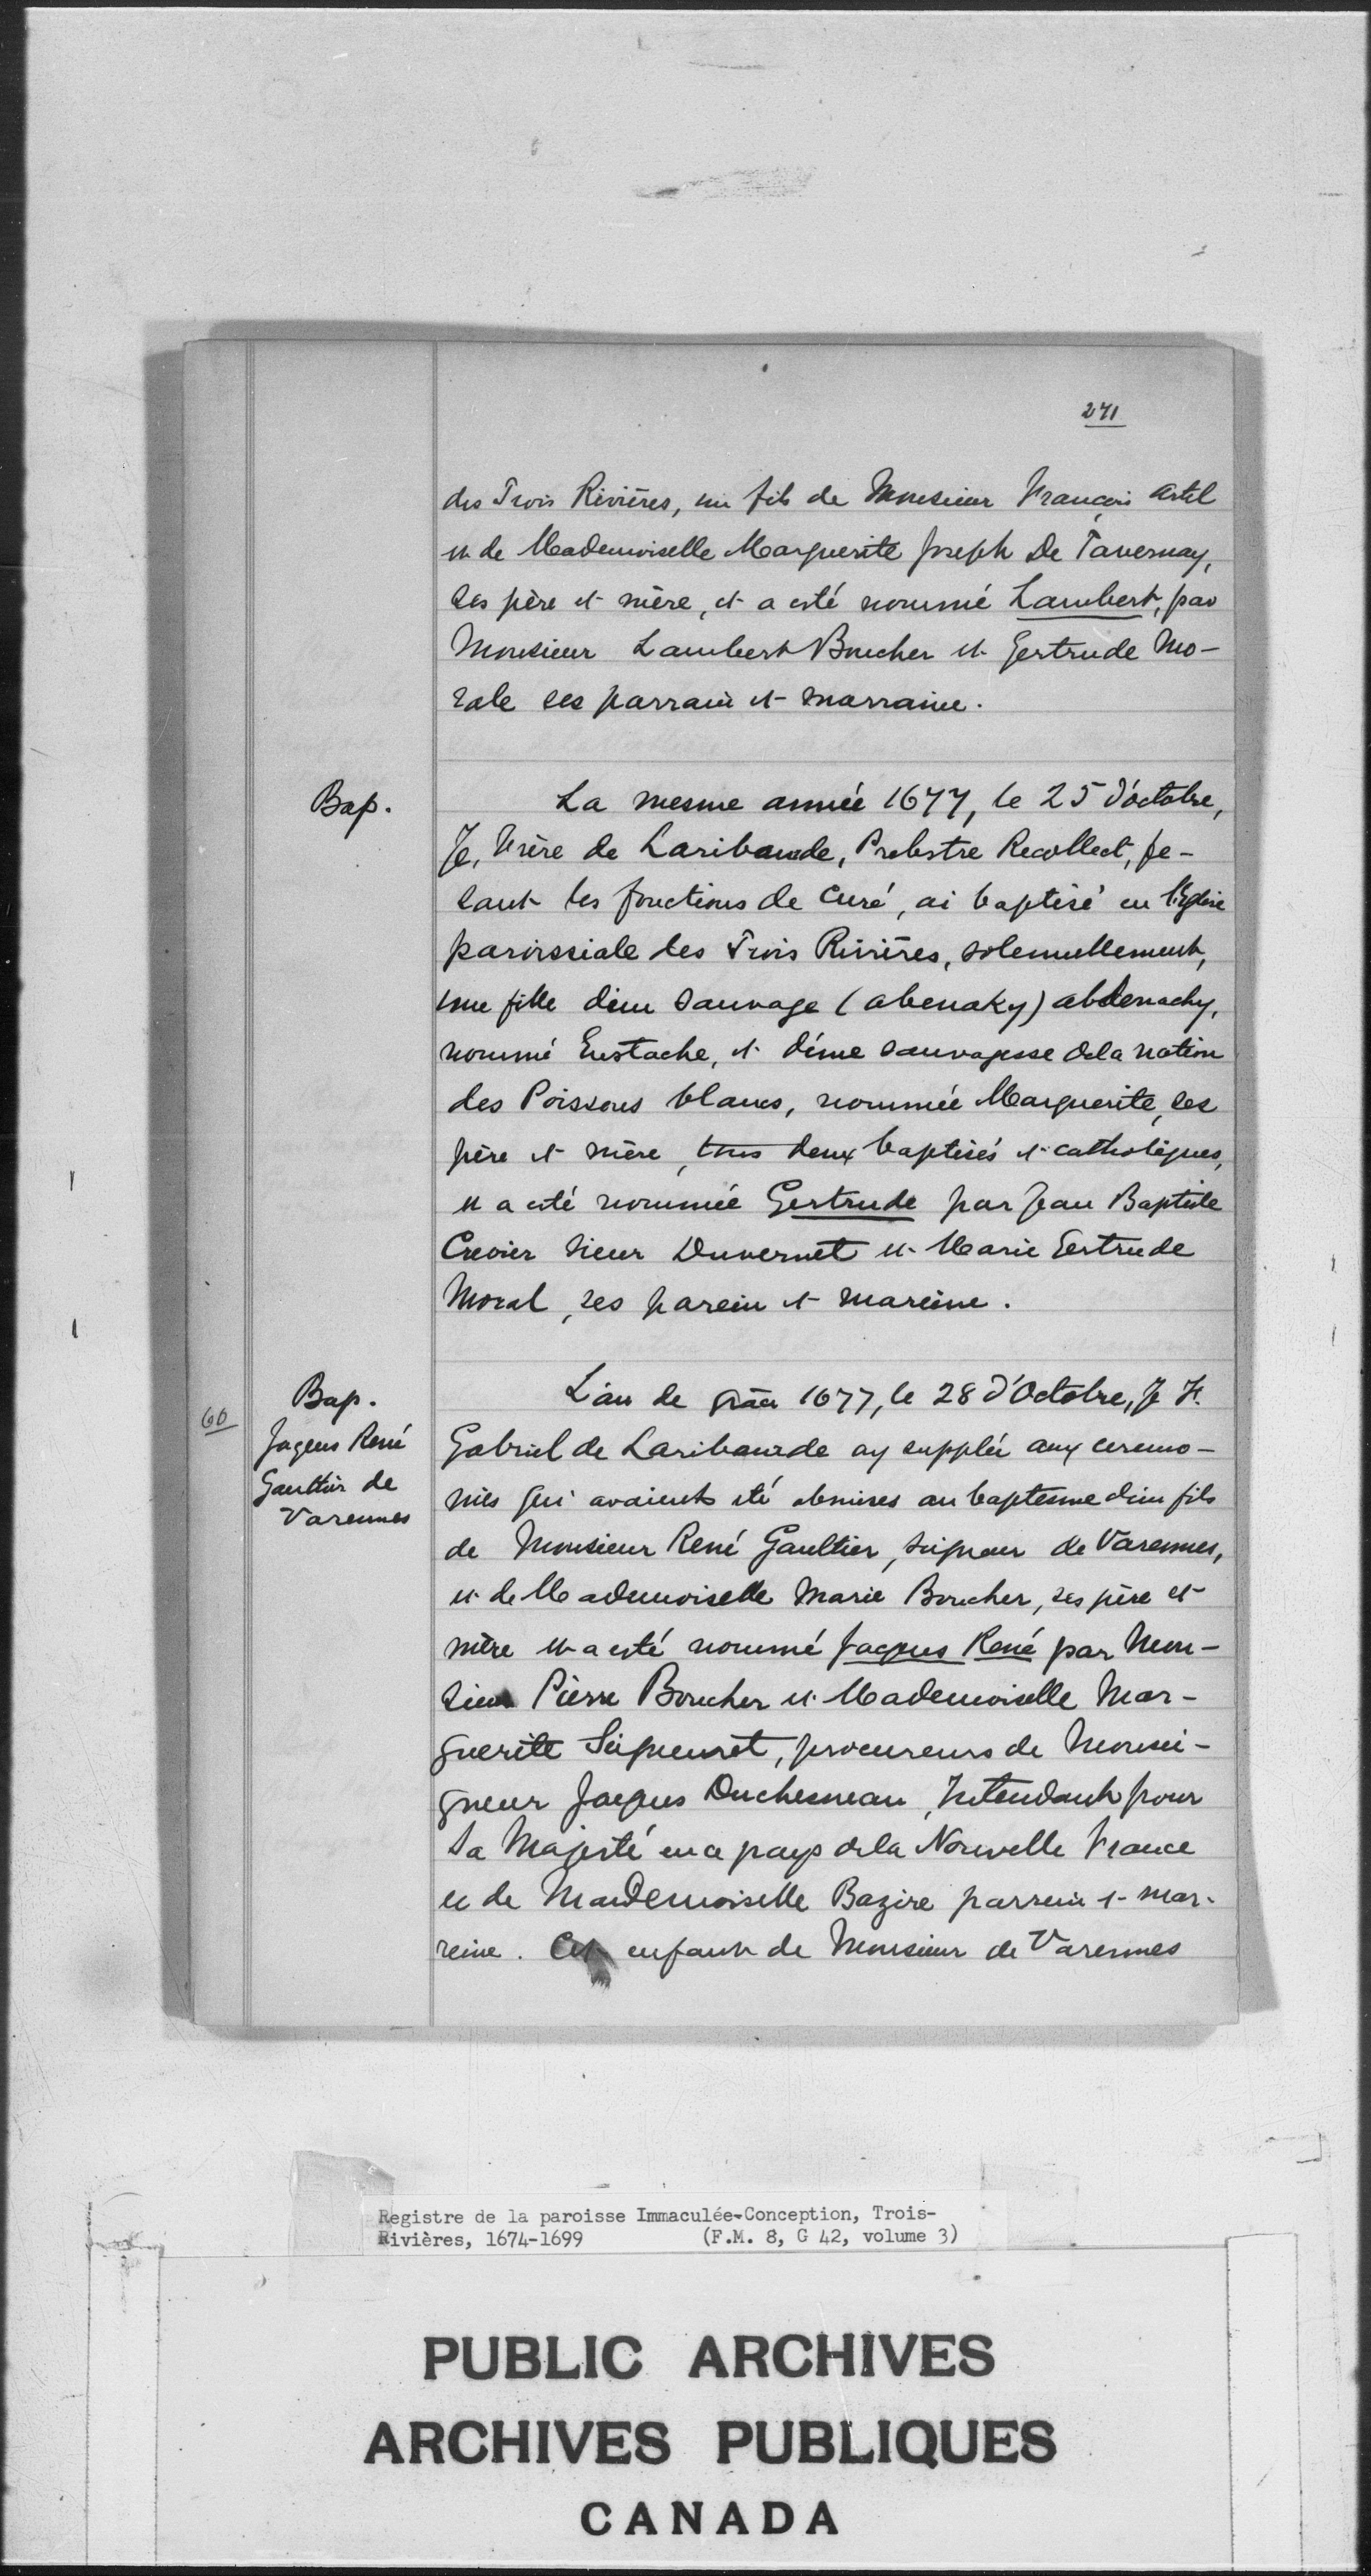 271
des Trois Rivières, un fils de Monsieur François Artel
et de Mademoiselle Marguerite Joseph De Tavernay,
ses père et mère, et a esté nommé Lambert, par
Monsieur Lambert Boucher et Gertrude Mo-
rale ses parrain et marraine.
Bap.
La mesme année 1677, le 25 d'octobre,
Je, Frère de Laribourde, Prebstre Recollect, fe-
sant les fonctions de Curé, ai baptisé en l'Eglise
paroissiale des Trois Rivières, solennellement,
une fille d'un sauvage (abenaky) abdenachy,
nommé Eustache, et d'une sauvagesse dela nation
des Poissons blancs, nommée Marguerite, ses
père et mère, tous deux baptisés et catholiques,
et a esté nommée Gertrude par Jean Baptiste
Crevier Sieur Duvernet et Marie Gertrude
Moral, ses parein et mareine.
60
Bap.
Jaques René
Gaultier de
Varennes
L'an de grâce 1677, le 28 d'Octobre, Je F.
Gabriel de Laribourde ay supplée aux ceremo-
nies qui avaient été obmises au baptesme d'un fils
de Monsieur René Gaultier, seigneur de Varennes,
et de Mademoiselle Marie Boucher, ses père et
mère et a esté nommé Jaques René par Mon-
sieur Pierre Boucher et Mademoiselle Mar-
guerite Seigneuret, procureurs de Monsei-
gneur Jaques Duchesneau, Intendant pour
Sa Majesté en ce pays dela Nouvelle France
et de Mademoiselle Bazire parrein et mar-
reine. Cet enfant de Monsieur de Varennes
Registre de la paroisse Immaculée-Conception, Trois-
Rivières, 1674-1699 (F.M. 8, G 42, volume 3)
PUBLIC ARCHIVES
ARCHIVES PUBLIQUES
CANADA